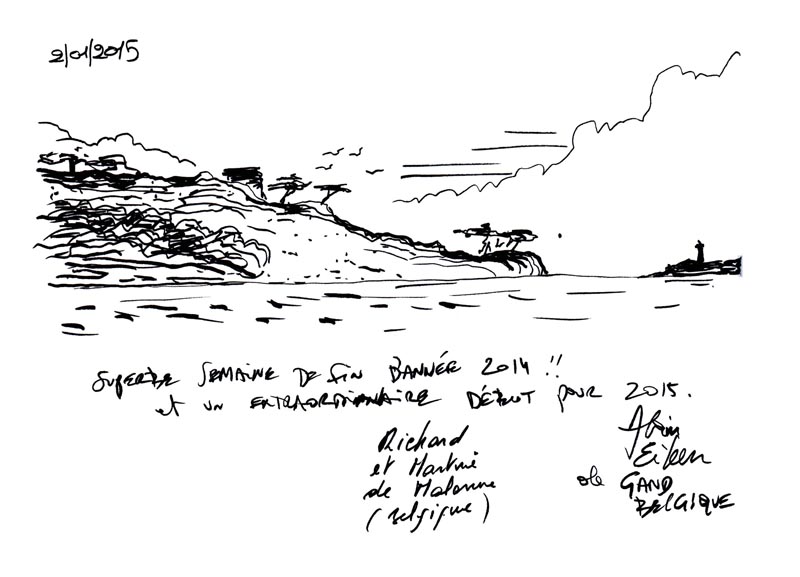 2/01/2015
SUPERBE SEMAINE DE FIN D'ANNÉE 2014 !!
et UN EXTRAORDINAIRE DÉBUT POUR 2015.
Richard
et Martine
de Malonne
(Belgique)
Eileen
de GAND
BELGIQUE